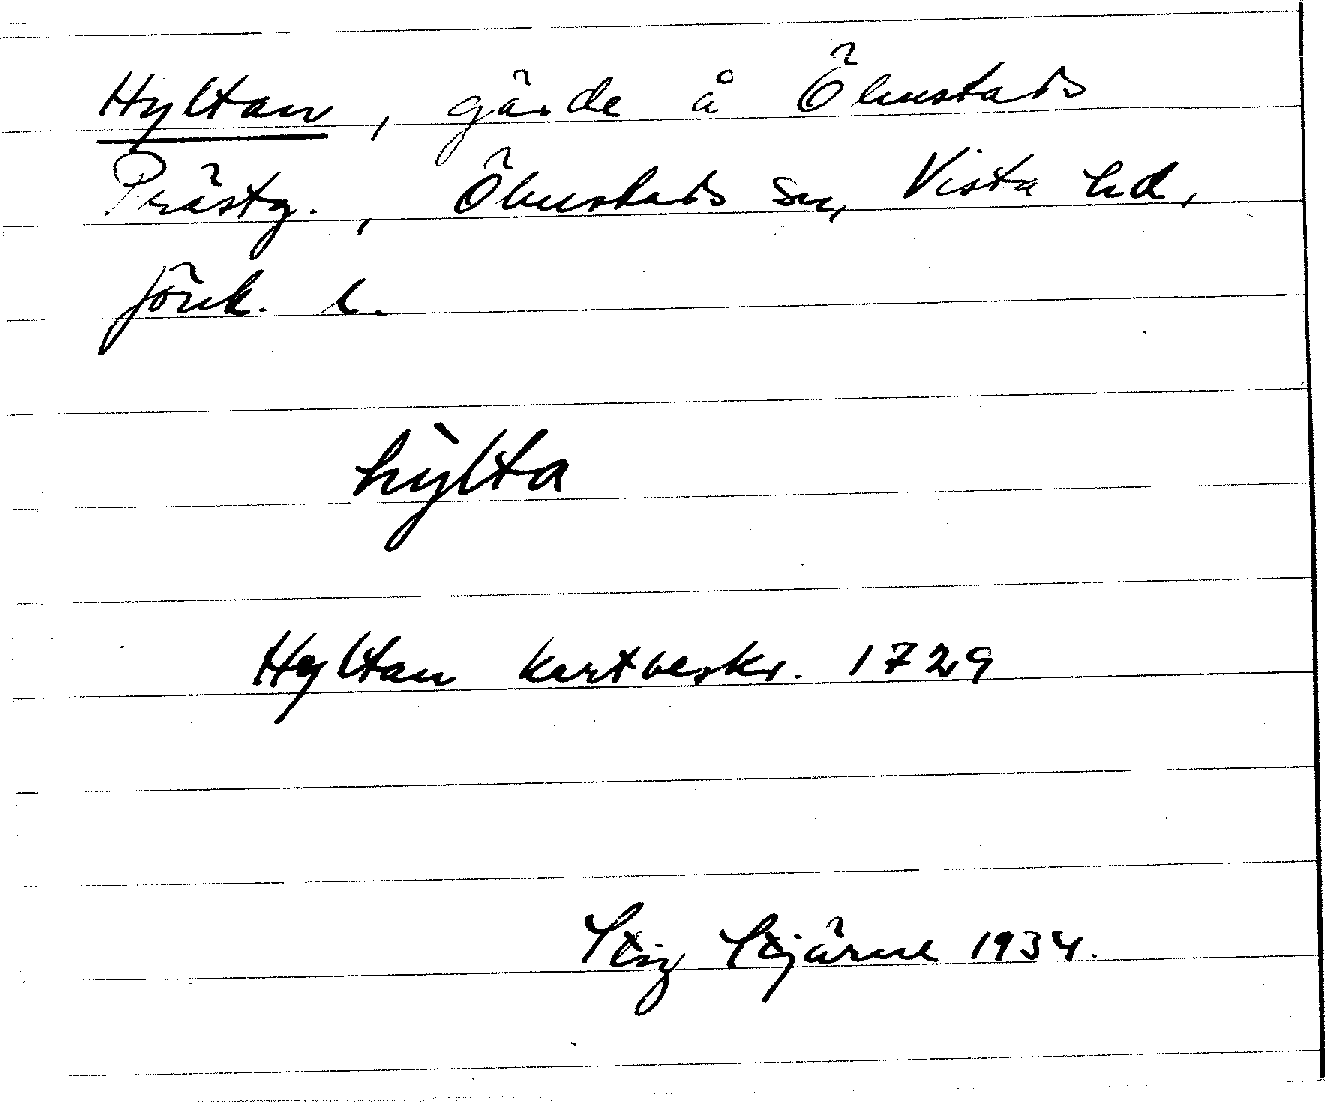 Hyltan, gärde å Ölmstads
Prästg., Ölmstads sn, Vista hd,
Jönk. l.
hy̆̀lta
Hyltan kartbeskr. 1729
Stig Stjärne 1934.